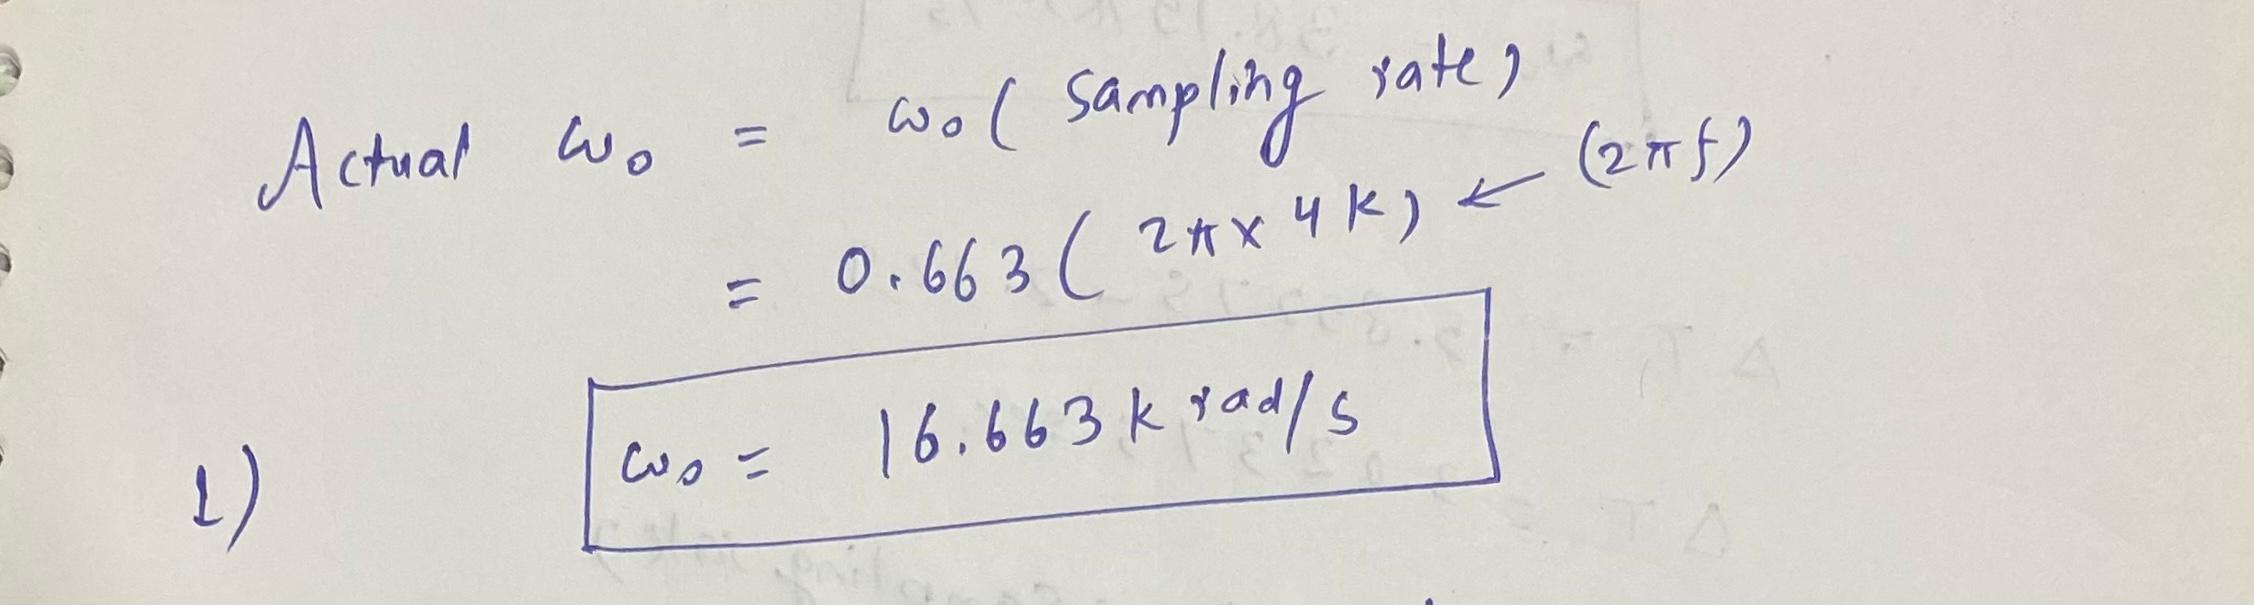 Actual ω₀ = ω₀( sampling rate)
= 0.663 ( 2π x 4 k) ← (2πf)
1) ω₀ = 16.663 k rad/s